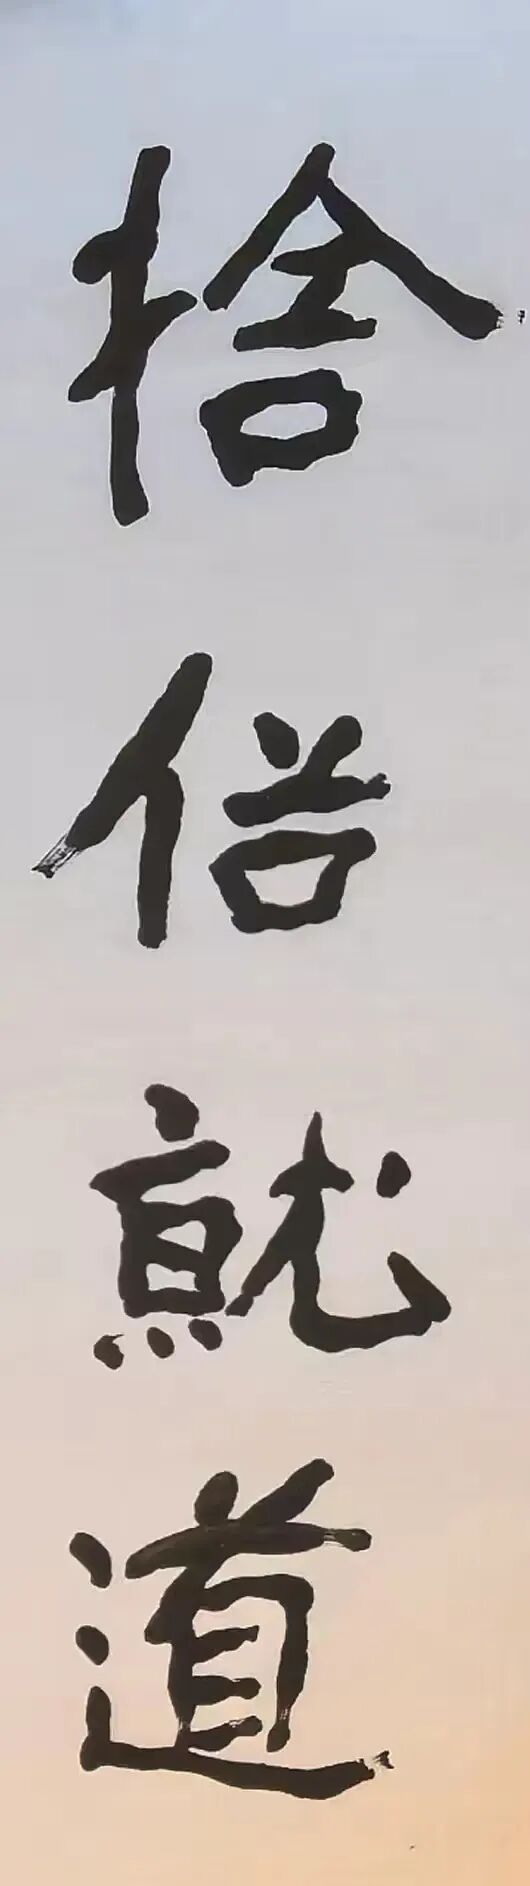 捨俗就道